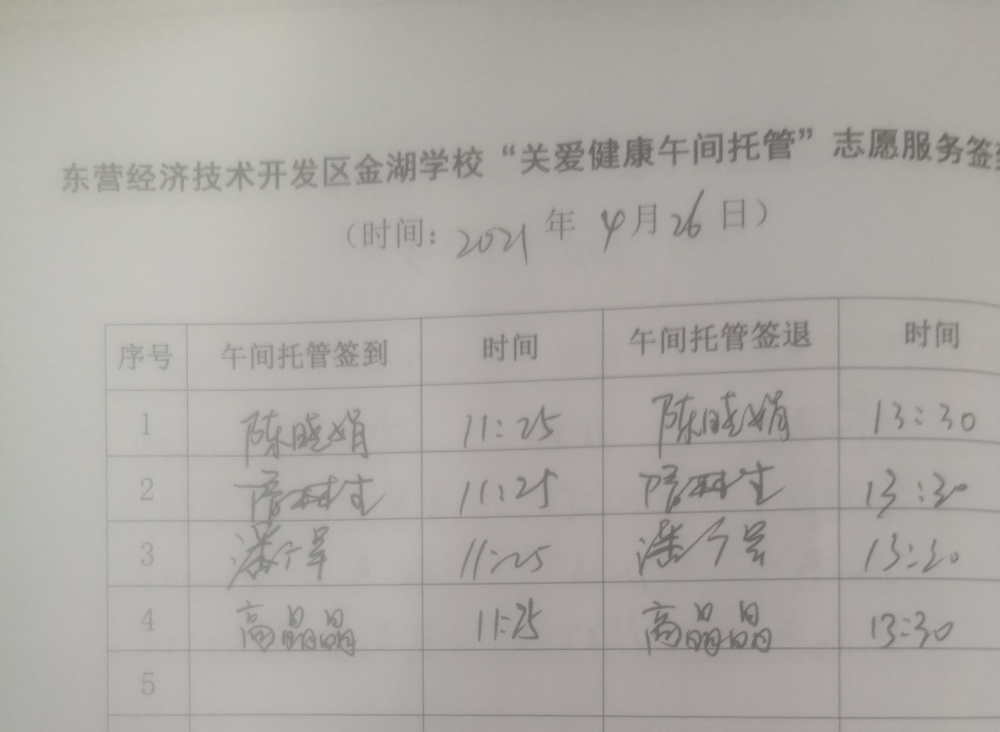 东营经济技术开发区金湖学校“关爱健康午间托管”志愿服务签
（时间：2021年4月26日）
序号 午间托管签到 时间 午间托管签退 时间
1 陈晓娟 11:25 陈晓娟 13:30
2 11:25 13:30
3 潘 11:25 潘 13:30
4 高晶晶 11:25 高晶晶 13:30
5